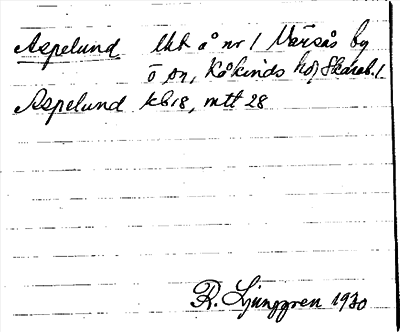 Aspelund lht å nr 1 Varsås by
ö sn, Kåkinds hd, Skarab. l.
Aspelund kb 18, mtt 28
R. Ljunggren 1930